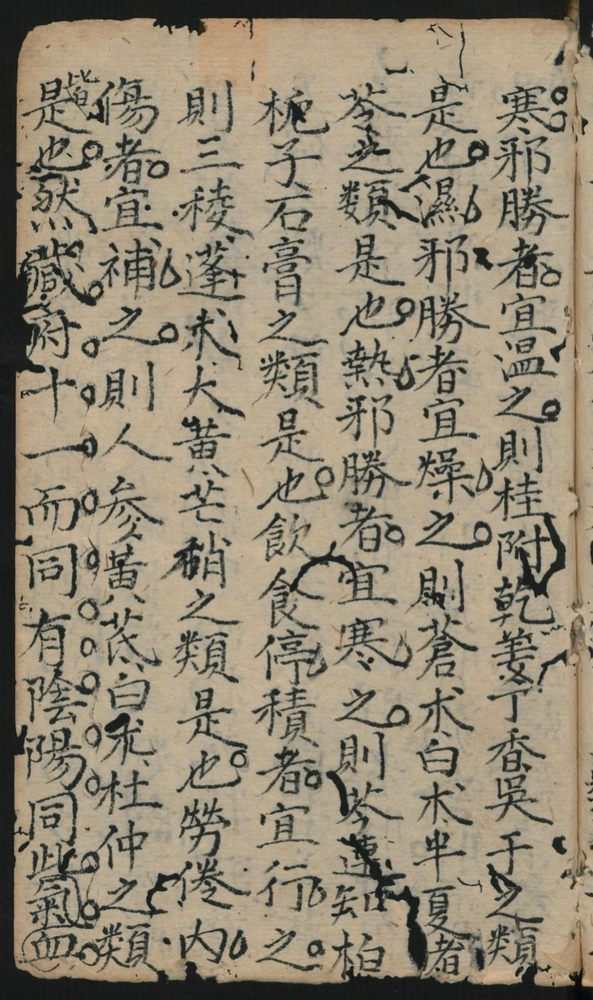 寒邪勝者宜温之則桂附乾姜丁香吳于之類
是也濕邪勝者宜燥之則蒼术白术半夏者
苓之類是也熱邪勝者宜寒之則芩連知柏
梔子石膏之類是也飲食停積者宜行之
則三稜蓬术大黄芒硝之類是也勞倦內
傷者宜補之則人參黄芪白术杜仲之類
皆是也然臟府十一而同有陰陽同此氣血